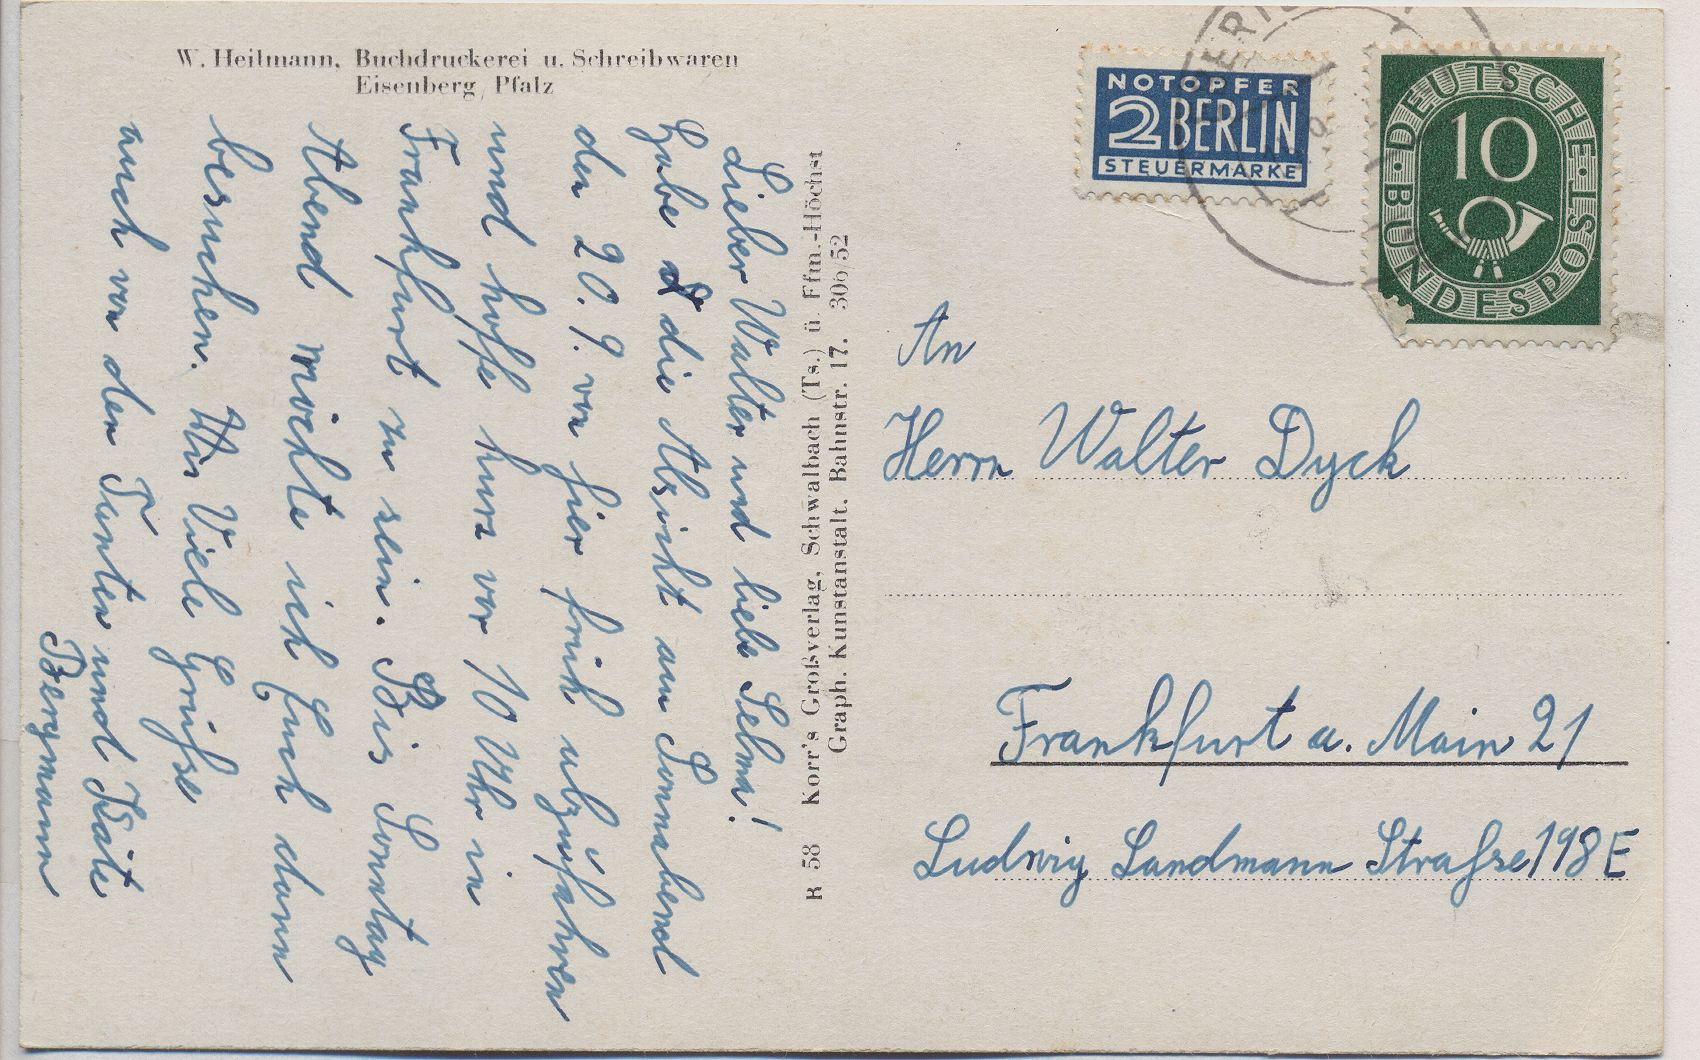 W. Heilmann, Buchdruckerei u. Schreibwaren
Eisenberg/Pfalz
Lieber Walter und liebe Selma!
Habe die Absicht am Sonnabend
den 20. 9. von hier früh abzufahren
und hoffe kurz vor 10 Uhr in
Frankfurt zu sein. Bis Sonntag
Abend möchte ich Euch dann
besuchen. Viele Grüße
auch von den Tanten und Käte
Bergmann
R 58 Korr's Großverlag, Schwalbach (Ts.) ü. Ffm.-Höchst
Graph. Kunstanstalt. Bahnstr. 17. 306/52
NOTOPFER
2 BERLIN
STEUERMARKE
DEUTSCHE BUNDESPOST
10
An
Herrn Walter Dyck
Frankfurt a. Main 21
Ludwig Landmann Straße 198 E